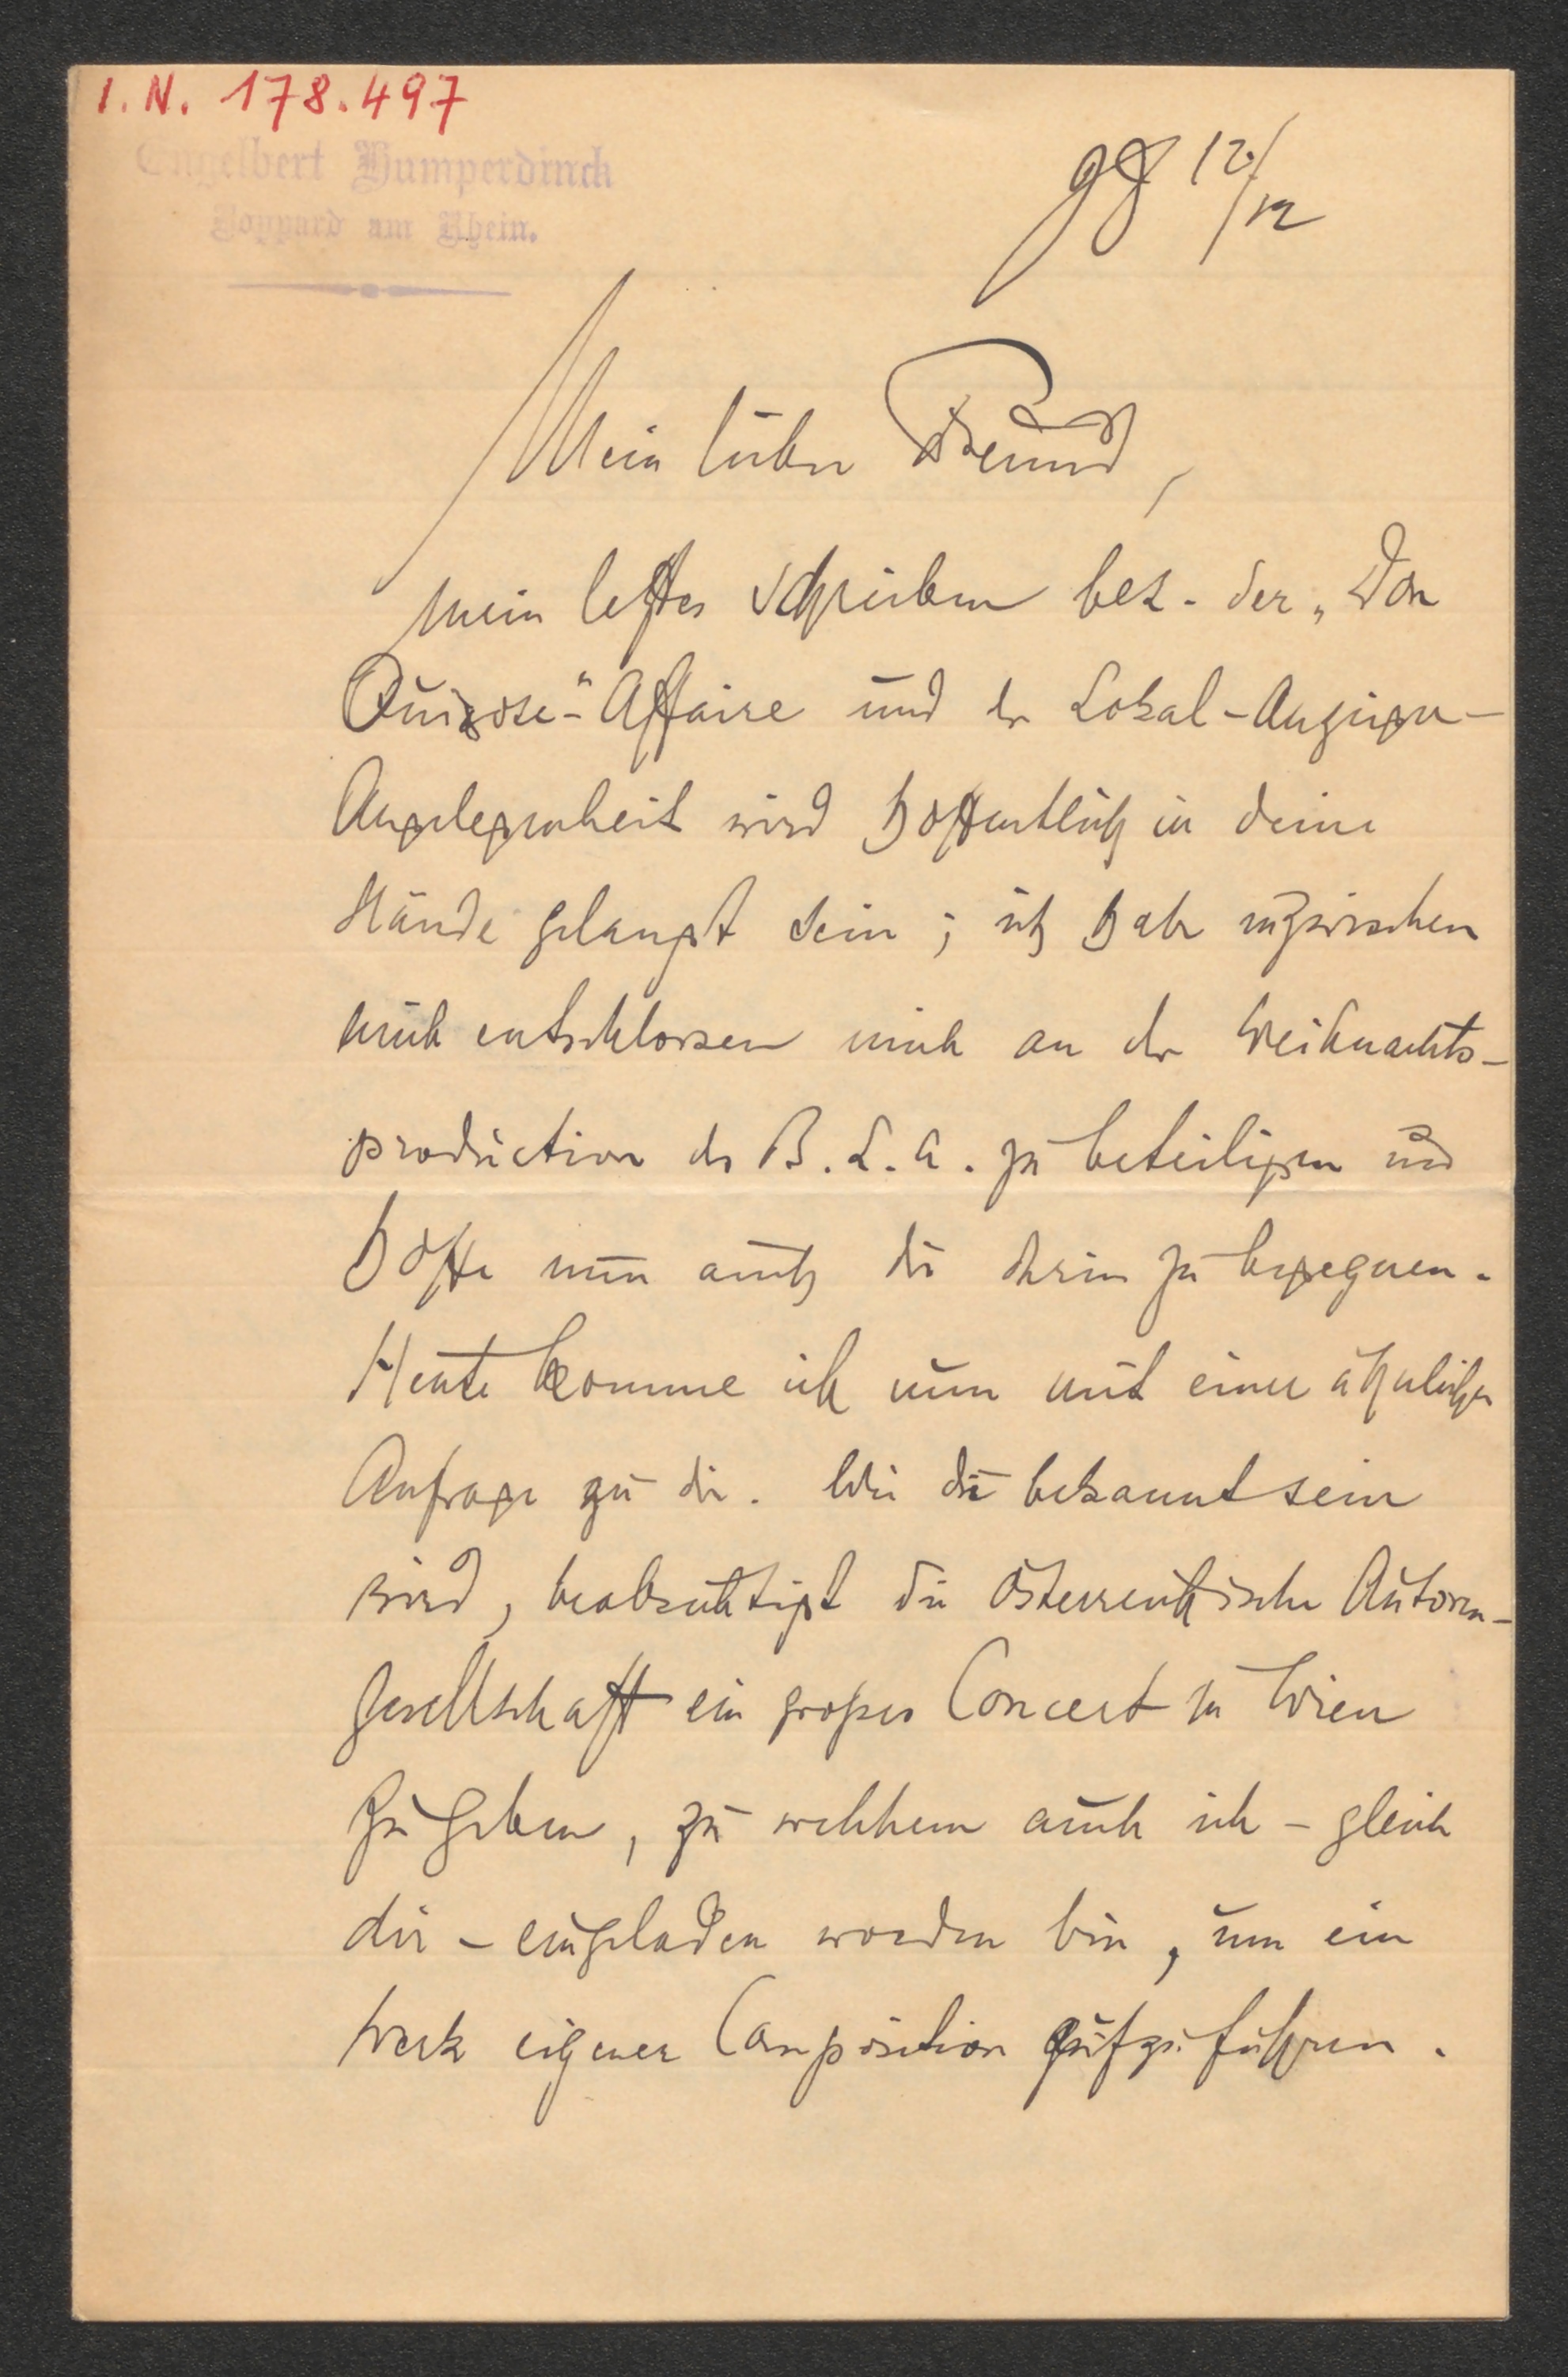 I. N. 178.497
Engelbert Humperdinck
Boppard am Rhein.
98 12/12
Mein lieber Freund,
Mein letztes Schreiben bez. der „Don
Quixote"-Affaire und der Lokal-Anzeiger-
Angelegenheit wird hoffentlich in deine
Hände gelangt sein; ich habe inzwischen
mich entschlossen mich an der Weihnachts-
production des B. L. A. zu beteiligen und
hoffe nun auch dir darin zu begegnen.
Heute komme ich nun mit einer ähnlichen
Anfrage zu dir. Wie dir bekannt sein
wird, beabsichtigt die österreichische Autoren-
gesellschaft ein großes Concert in Wien
zu geben, zu welchem auch ich - gleich
dir - eingeladen worden bin, um ein
Werk eigener Composition aufzuführen.